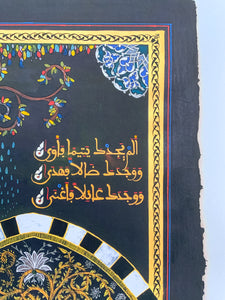 ألم يجدك يتيما فآوى
ووجدك ضالا فهدى
ووجدك عايلا فأغنى